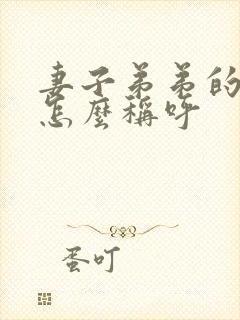 妻子弟弟的
怎麼稱呼
蛋叮